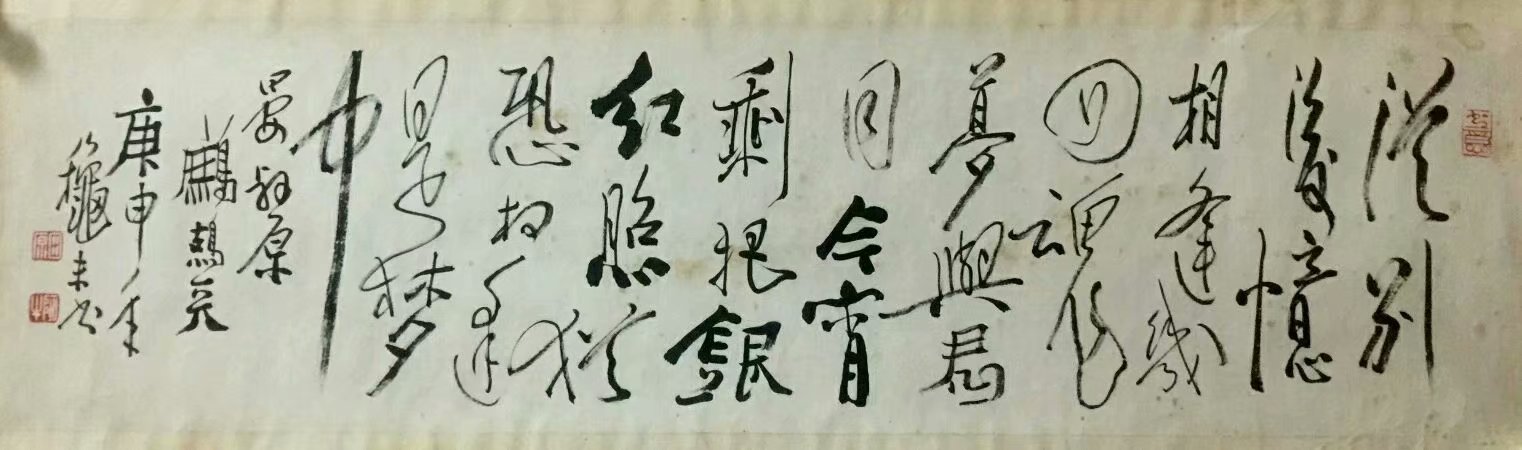 從別
後憶
相逢幾
回魂
夢與君
同今宵
剩把銀
紅照猶
恐相逢
是夢
中
晏
鷓鴣天
庚申年
龜未書